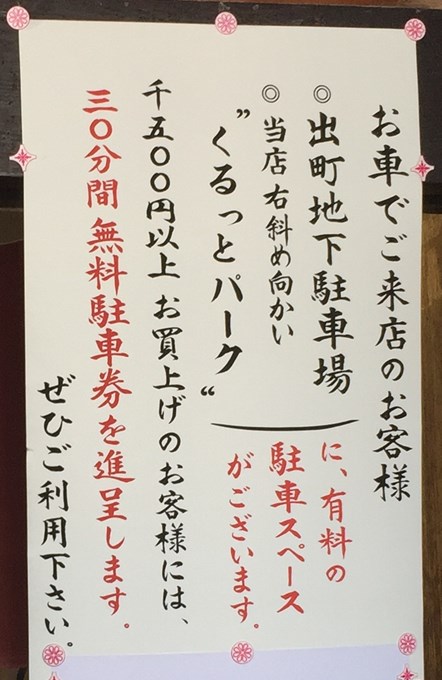 お車でご来店のお客様
◎出町地下駐車場
◎当店右斜め向かい
"くるっとパーク"
に、有料の
駐車スペース
がございます。
千五〇〇円以上 お買上げのお客様には、
三〇分間 無料駐車券を進呈します。
ぜひご利用下さい。